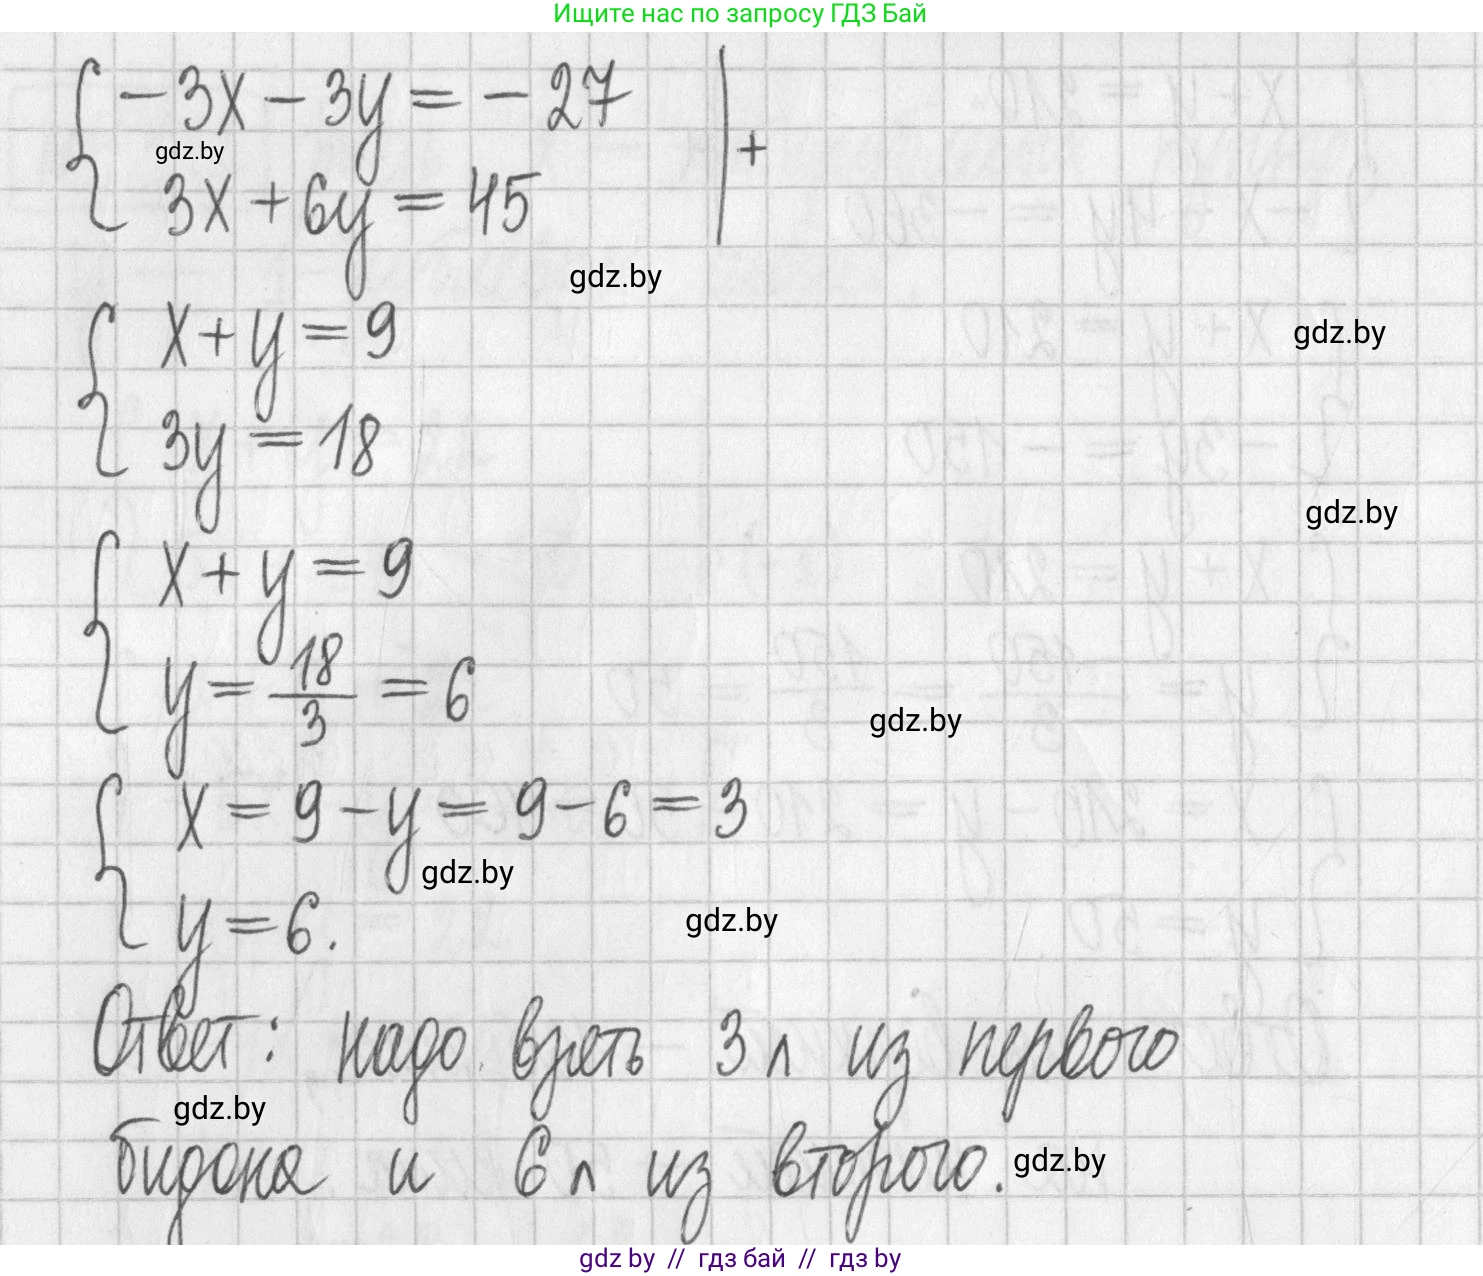 Ищите нас по запросу ГДЗ Бай
{ -3x - 3y = -27 | +
gdz.by
3x + 6y = 45
gdz.by
{ x + y = 9
gdz.by
3y = 18
gdz.by
{ x + y = 9
y = 18/3 = 6
gdz.by
{ x = 9 - y = 9 - 6 = 3
gdz.by
gdz.by
y = 6.
Ответ: надо взять 3 л из первого
gdz.by
бидона и 6 л из второго.
gdz.by
gdz by // гдз бай // гдз by